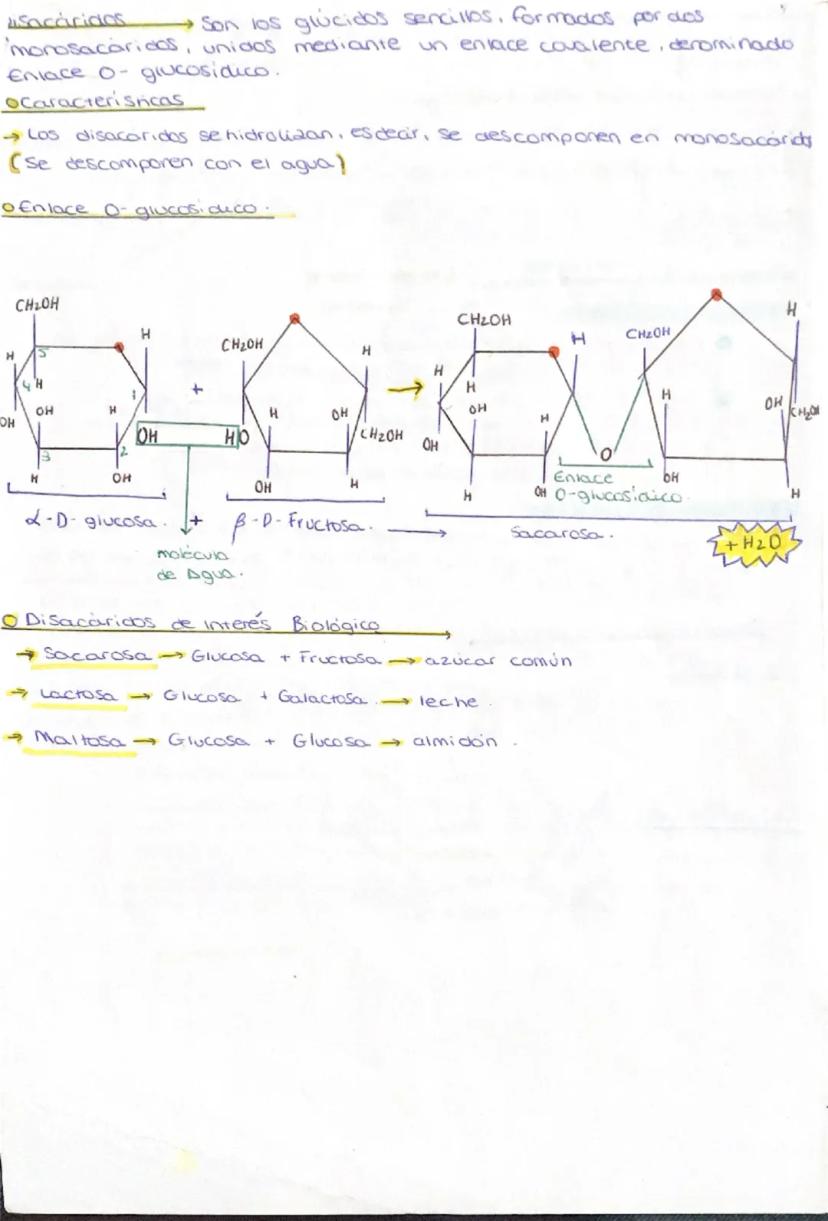 Disacáridos → Son los glúcidos sencillos, formados por dos
monosacáridos, unidos mediante un enlace covalente, denominado
Enlace O-glucosídico.
Características
→ Los disacáridos se hidrolizan, es decir, se descomponen en monosacárids
(Se descomponen con el agua)
Enlace O-glucosídico.
CH2OH H + CH2OH H → CH2OH H CH2OH H
H 5 4 H 1 H H H
OH OH H 2 3 OH HO H OH CH2OH OH OH H H OH CH2OH
H OH OH H H OH O OH H
Enlace
O-glucosídico.
α-D-glucosa. + β-D-Fructosa. → Sacarosa. + H2O
molécula
de Agua.
Disacáridos de interés Biológico
→ Sacarosa → Glucosa + Fructosa → azúcar común
→ Lactosa → Glucosa + Galactosa → leche
→ Maltosa → Glucosa + Glucosa → almidón.